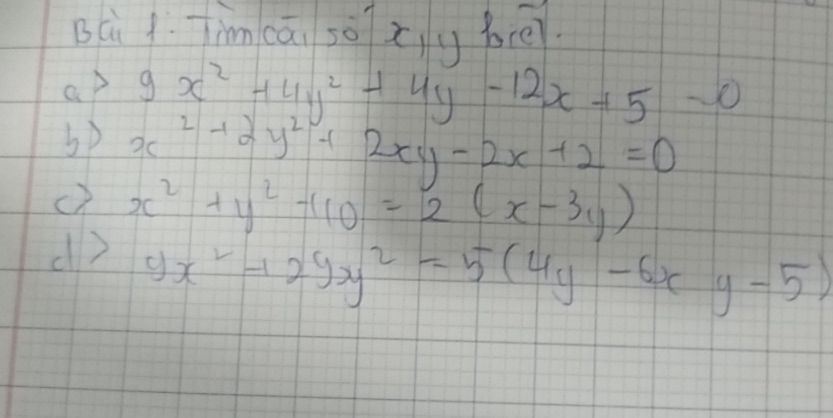 Bài 1: Tìm các số x, y biết.
a> 9x² + 4y² + 4y - 12x + 5 = 0
b) x² + 2y² + 2xy - 2x + 2 = 0
c> x² + y² + 10 = 2(x - 3y)
d> 9x² + 29y² = 5(4y - 6xy - 5)